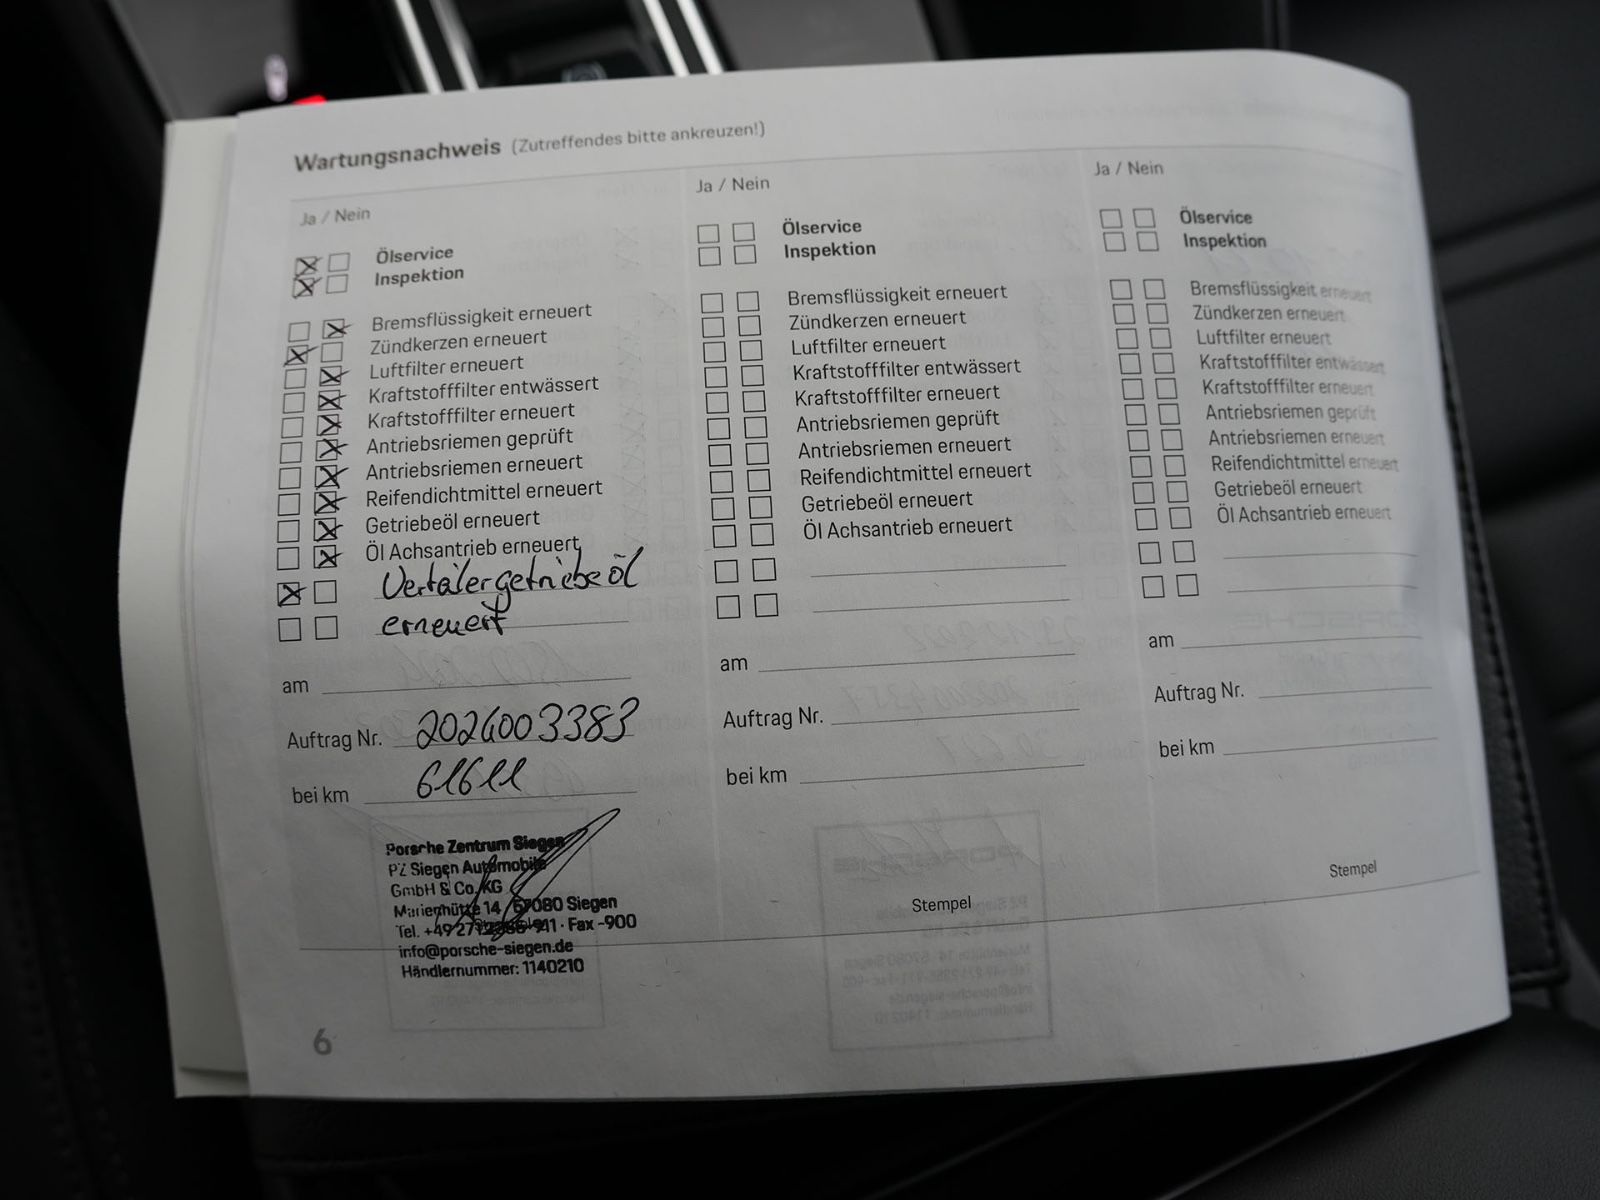 Wartungsnachweis (Zutreffendes bitte ankreuzen!)
Ja / Nein
Ölservice
Inspektion
Bremsflüssigkeit erneuert
Zündkerzen erneuert
Luftfilter erneuert
Kraftstofffilter entwässert
Kraftstofffilter erneuert
Antriebsriemen geprüft
Antriebsriemen erneuert
Reifendichtmittel erneuert
Getriebeöl erneuert
Öl Achsantrieb erneuert
Verteilergetriebeöl
erneuert
am
Auftrag Nr. 2024003383
bei km 61611
Porsche Zentrum Siegen
PZ Siegen Automobile
GmbH & Co. KG
Marienhütte 14 57080 Siegen
Tel. +49 271 -911 · Fax -900
info@porsche-siegen.de
Händlernummer: 1140210
6
Ja / Nein
Ölservice
Inspektion
Bremsflüssigkeit erneuert
Zündkerzen erneuert
Luftfilter erneuert
Kraftstofffilter entwässert
Kraftstofffilter erneuert
Antriebsriemen geprüft
Antriebsriemen erneuert
Reifendichtmittel erneuert
Getriebeöl erneuert
Öl Achsantrieb erneuert
am
Auftrag Nr.
bei km
Stempel
Ja / Nein
Ölservice
Inspektion
Bremsflüssigkeit erneuert
Zündkerzen erneuert
Luftfilter erneuert
Kraftstofffilter entwässert
Kraftstofffilter erneuert
Antriebsriemen geprüft
Antriebsriemen erneuert
Reifendichtmittel erneuert
Getriebeöl erneuert
Öl Achsantrieb erneuert
am
Auftrag Nr.
bei km
Stempel